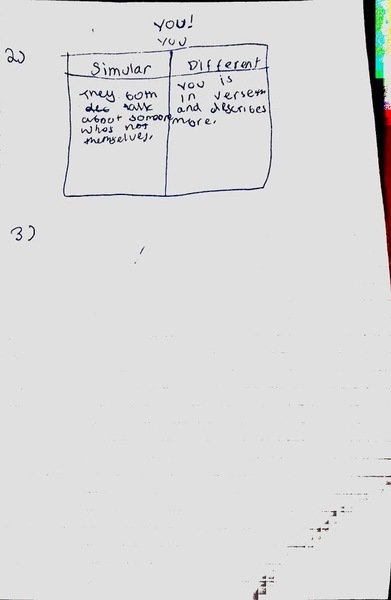 YOU!
YOU
2)
Simular
Different
They both
talk
about someone
whos not
themselves.
YOU is
in verse
and describes
more.
3)